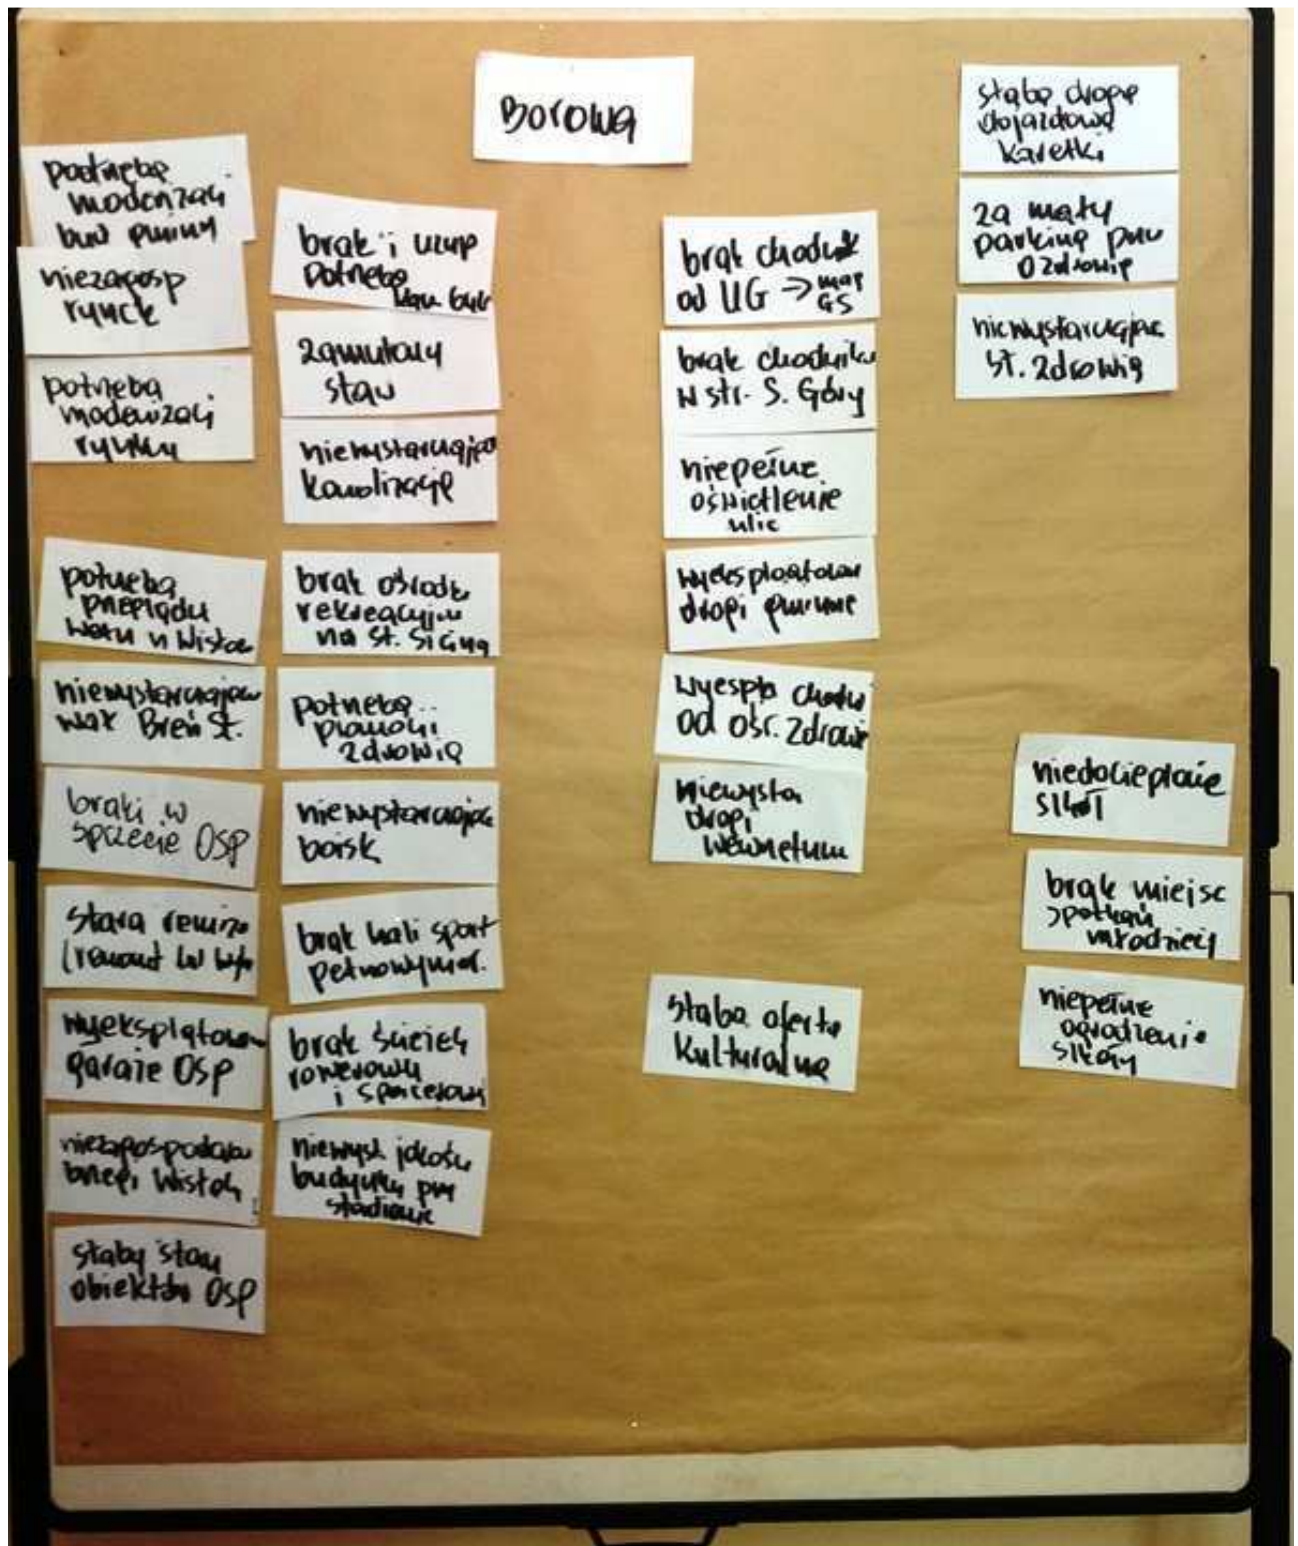 Borowa
potrzeba
modernizacji
bud gminy
niezagosp
rynek
potrzeba
modernizacji
rynku
potrzeba
przeglądu
wału n Wisłoc
niewystarczając
wał Breń St.
braki w
sprzęcie OSP
stara remiza
(remont lub
wyeksplatowan
garaże OSP
niezagospodarow
brzegi Wisłoki
słaby stan
obiektów OSP
brak i uzup
potrzeba
zamulony
staw
niewystarczająca
kanalizacja
brak ośrodk
rekreacyjn
na st.
potrzeba
promocji
zdrowia
niewystarczając
boisk
brak hali sport
pełnowymiar.
brak ścieżek
rowerowych
i spacerowych
niewyst jakość
budynku przy
stadionie
brak chodnik
od UG → mag
GS
brak chodnika
w str. S. Góry
niepełne
oświetlenie
ulic
wyeksploatowan
drogi gminne
wyespla chodni
od ośr. Zdrowia
niewysta
drogi
wewnętrzn
słaba oferta
kulturalna
słaba droga
dojazdowa
karetki
za mały
parking przy
O Zdrowia
niewystarczając
st. zdrowia
niedocieplone
szkoł
brak miejsc
spotkań
młodzieży
niepełne
ogrodzenie
szkoły